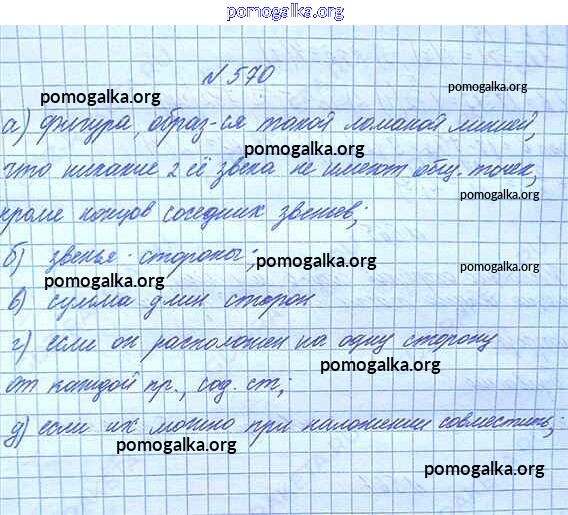 pomogalka.org
№ 570
pomogalka.org
pomogalka.org
а) фигура, образ-ся такой ломаной линией,
pomogalka.org
что никакие 2 её звена не имеют общ. точек,
pomogalka.org
кроме концов соседних звеньев;
б) звенья - стороны;
pomogalka.org
pomogalka.org
pomogalka.org
в) сумма длин сторон
г) если он расположен на одну сторону
pomogalka.org
от каждой пр., сод. ст;
д) если их можно при наложении совместить;
pomogalka.org
pomogalka.org